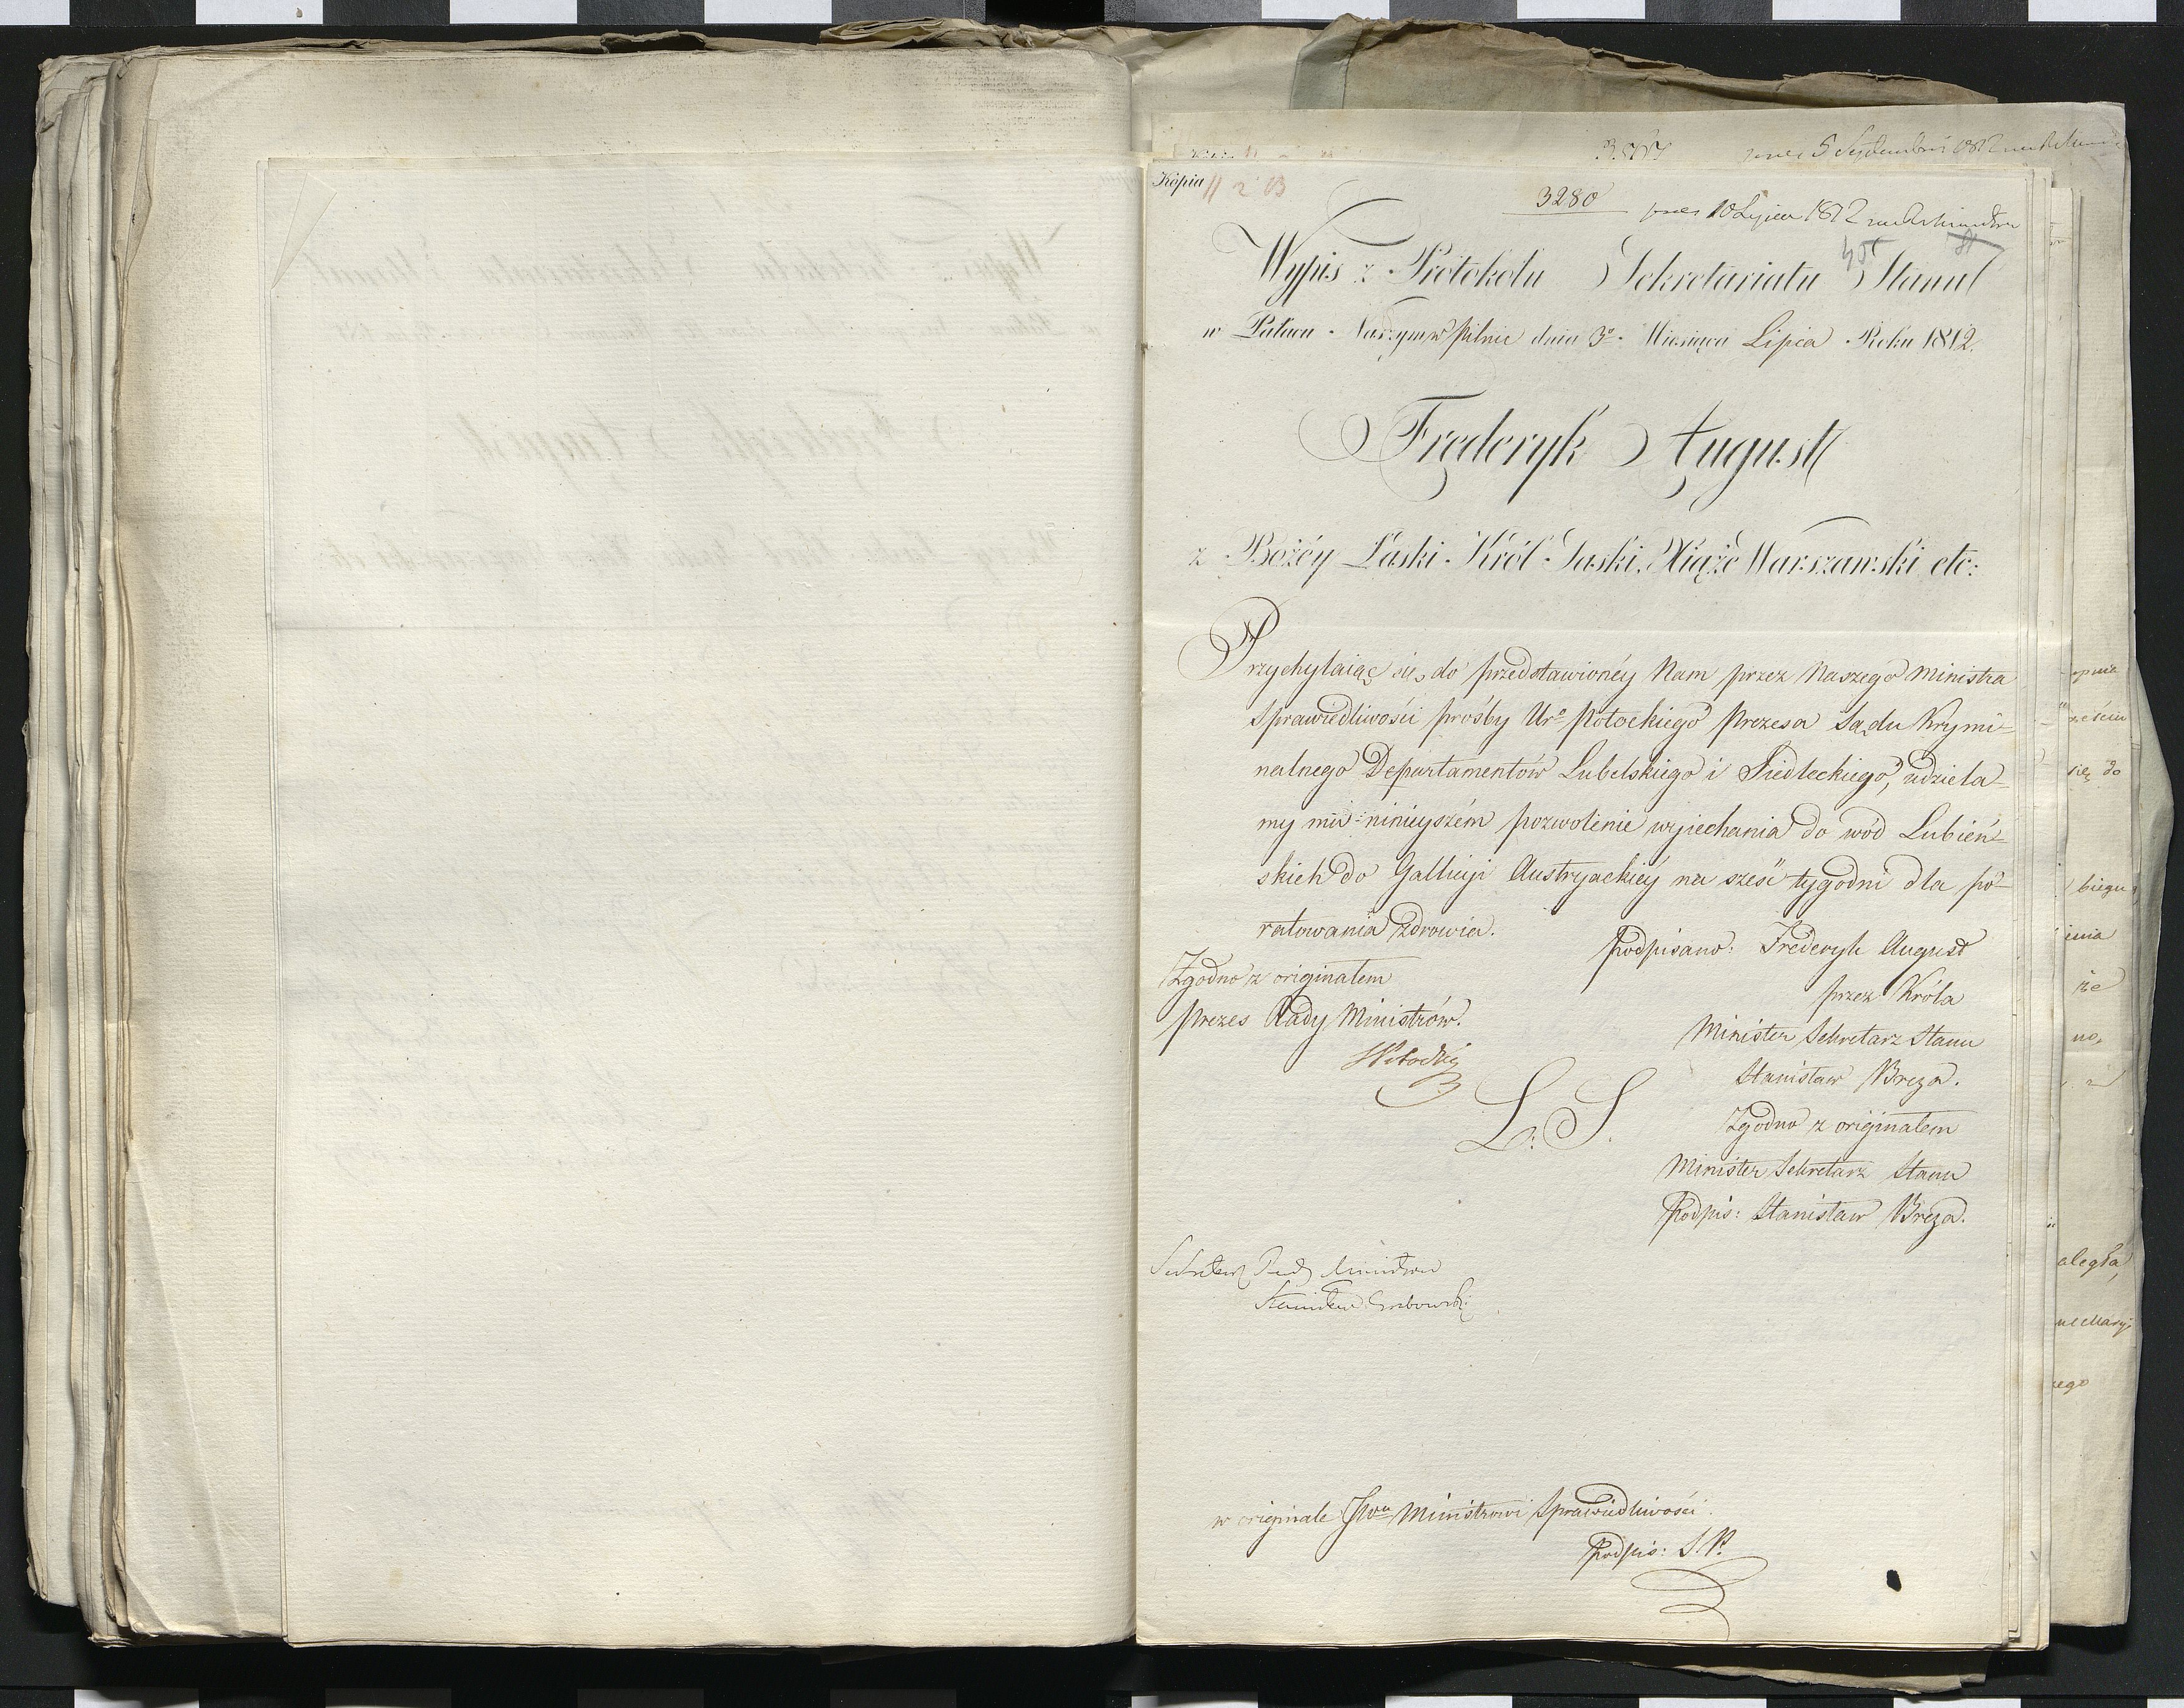 Kopia
3280
10 Lipca 1812
Wypis z Protokołu Sekretariatu Stanu
w Pałacu Naszym w Pilnie dnia 3º Miesiąca Lipca Roku 1812.
Fryderyk August
z Bożéy Łaski Król Saski, Xiąże Warszawski etc:
Przychylaiąc się do przedstawionéy Nam przez Naszego Ministra
Sprawiedliwości prośby Urº Potockiego Prezesa Sądu Krymi=
nalnego Departamentów Lubelskiego i Siedleckiego, udziela=
my mu ninieyszém pozwolenie wyiechania do wód Lubień=
skich do Gallicyi Austryackiéy na sześć tygodni dla po=
ratowania zdrowia.
Podpisano: Frederyk August
przez Króla
Minister Sekretarz Stanu
Stanisław Breza.
Zgodno z originałem
Minister Sekretarz Stanu
Podpis: Stanisław Breza.
Zgodno z originałem
Prezes Rady Ministrów.
L: S.
Sekretarz Rady Ministrów
Stanisław Grabowski
w originale JWu Ministrowi Sprawiedliwości.
Podpis: S. P.